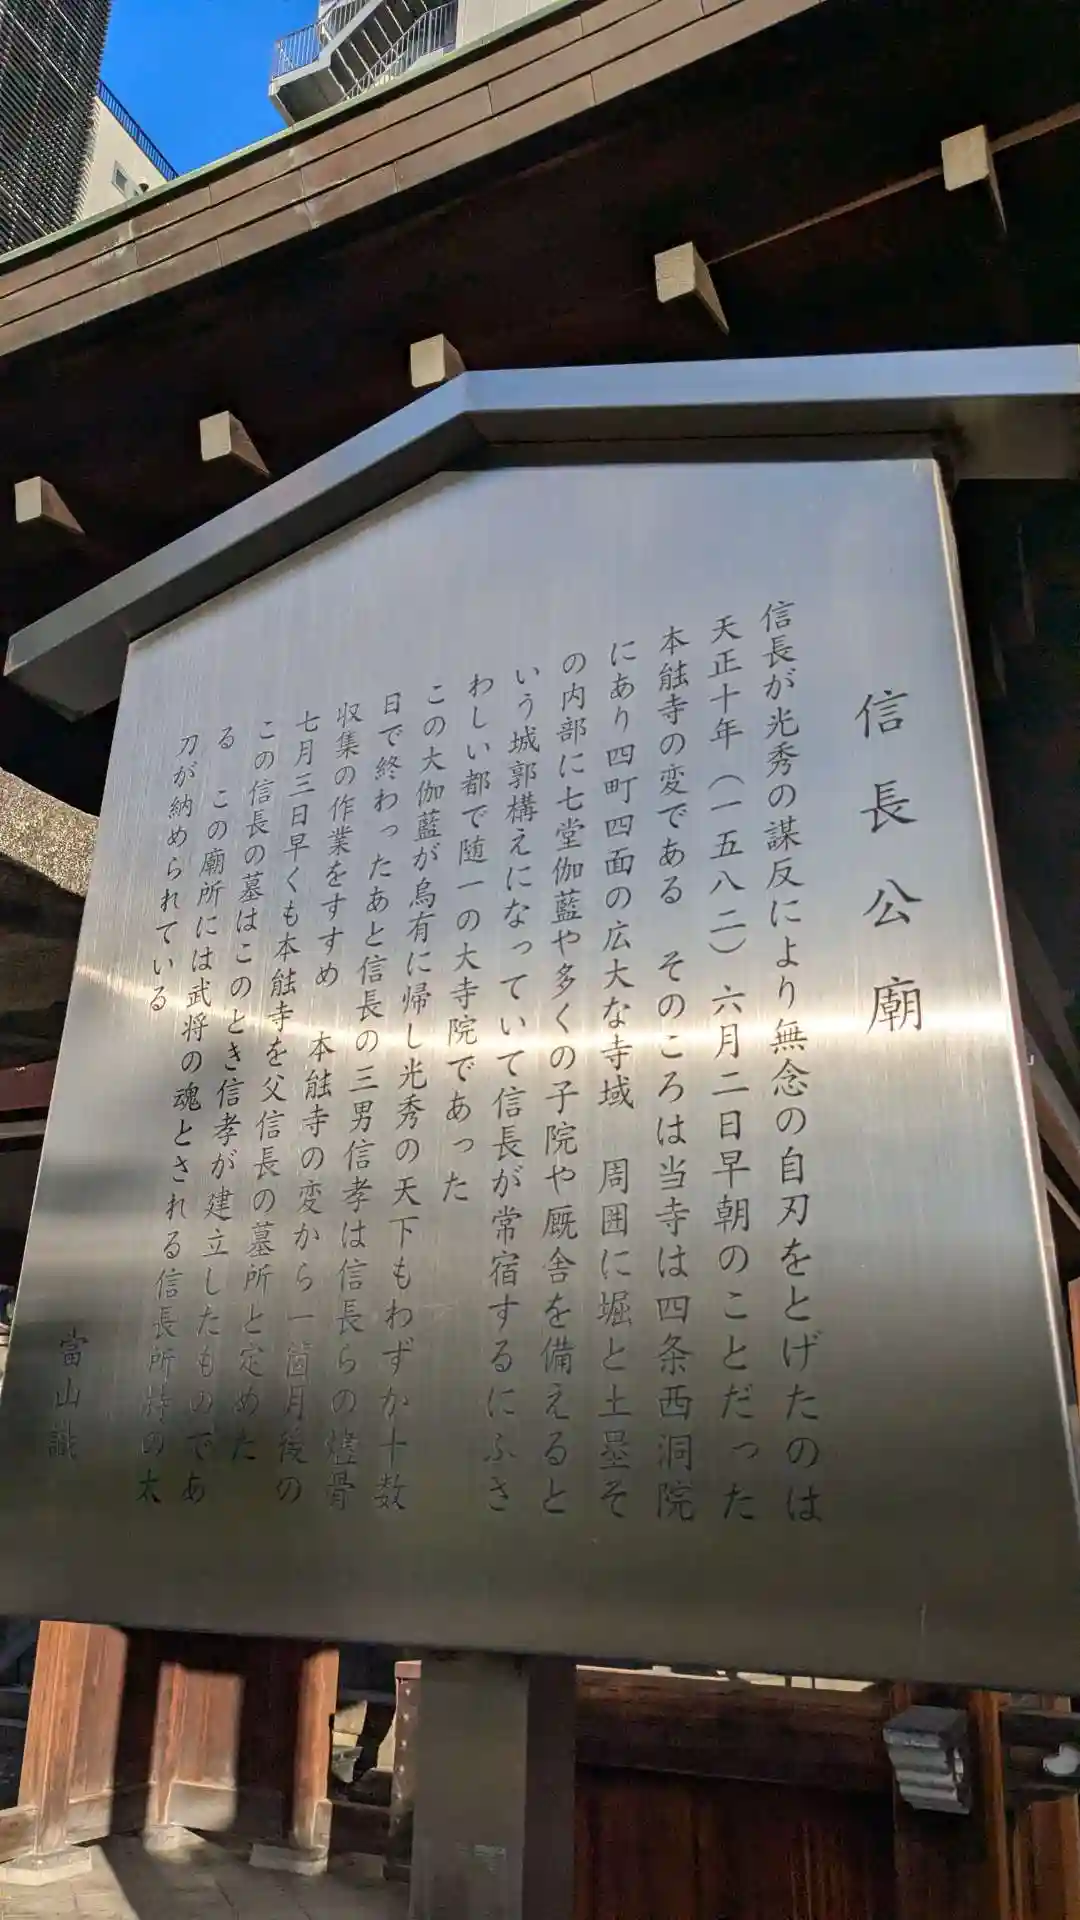 信長公廟
信長が光秀の謀反により無念の自刃をとげたのは
天正十年（一五八二）六月二日早朝のことだった
本能寺の変である　そのころは当寺は四条西洞院
にあり四町四面の広大な寺域　周囲に堀と土塁そ
の内部に七堂伽藍や多くの子院や厩舎を備えると
いう城郭構えになっていて信長が常宿するにふさ
わしい都で随一の大寺院であった
この大伽藍が烏有に帰し光秀の天下もわずか十数
日で終わったあと信長の三男信孝は信長らの燼骨
収集の作業をすすめ　本能寺の変から一箇月後の
七月三日早くも本能寺を父信長の墓所と定めた
この信長の墓はこのとき信孝が建立したものであ
る　この廟所には武将の魂とされる信長所持の太
刀が納められている
富山識